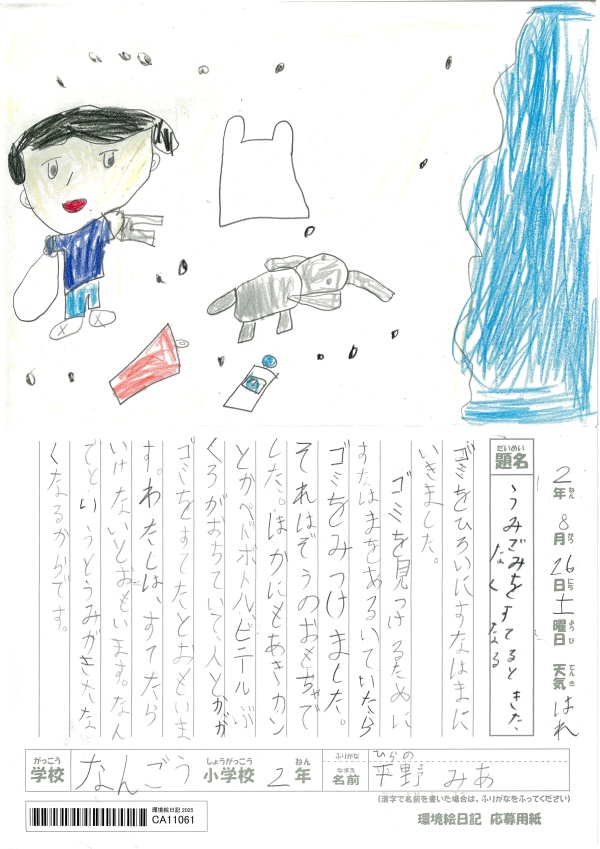 2年 8月 26日 土曜日 天気 はれ
題名 うみごみをすてるときた、
なくなる
ゴミをひろいにすなはまに
いきました。
ゴミを見つけるために
すなはまをあるいていたら
ゴミをみつけました。
それはぞうのおもちゃで
した。ほかにもあきカン
とかペトボトルビニールぶ
くろがおちていて、人とかが
ゴミをすてたとおもいま
す。わたしは、すてたら
いけないとおもいます。なん
でというとうみがきたな
くなるからです。
学校 なんごう 小学校 2年
名前 平野 みあ
ひらの
(漢字で名前を書いた場合は、ふりがなをふってください)
環境絵日記 応募用紙
環境絵日記 2025
CA11061